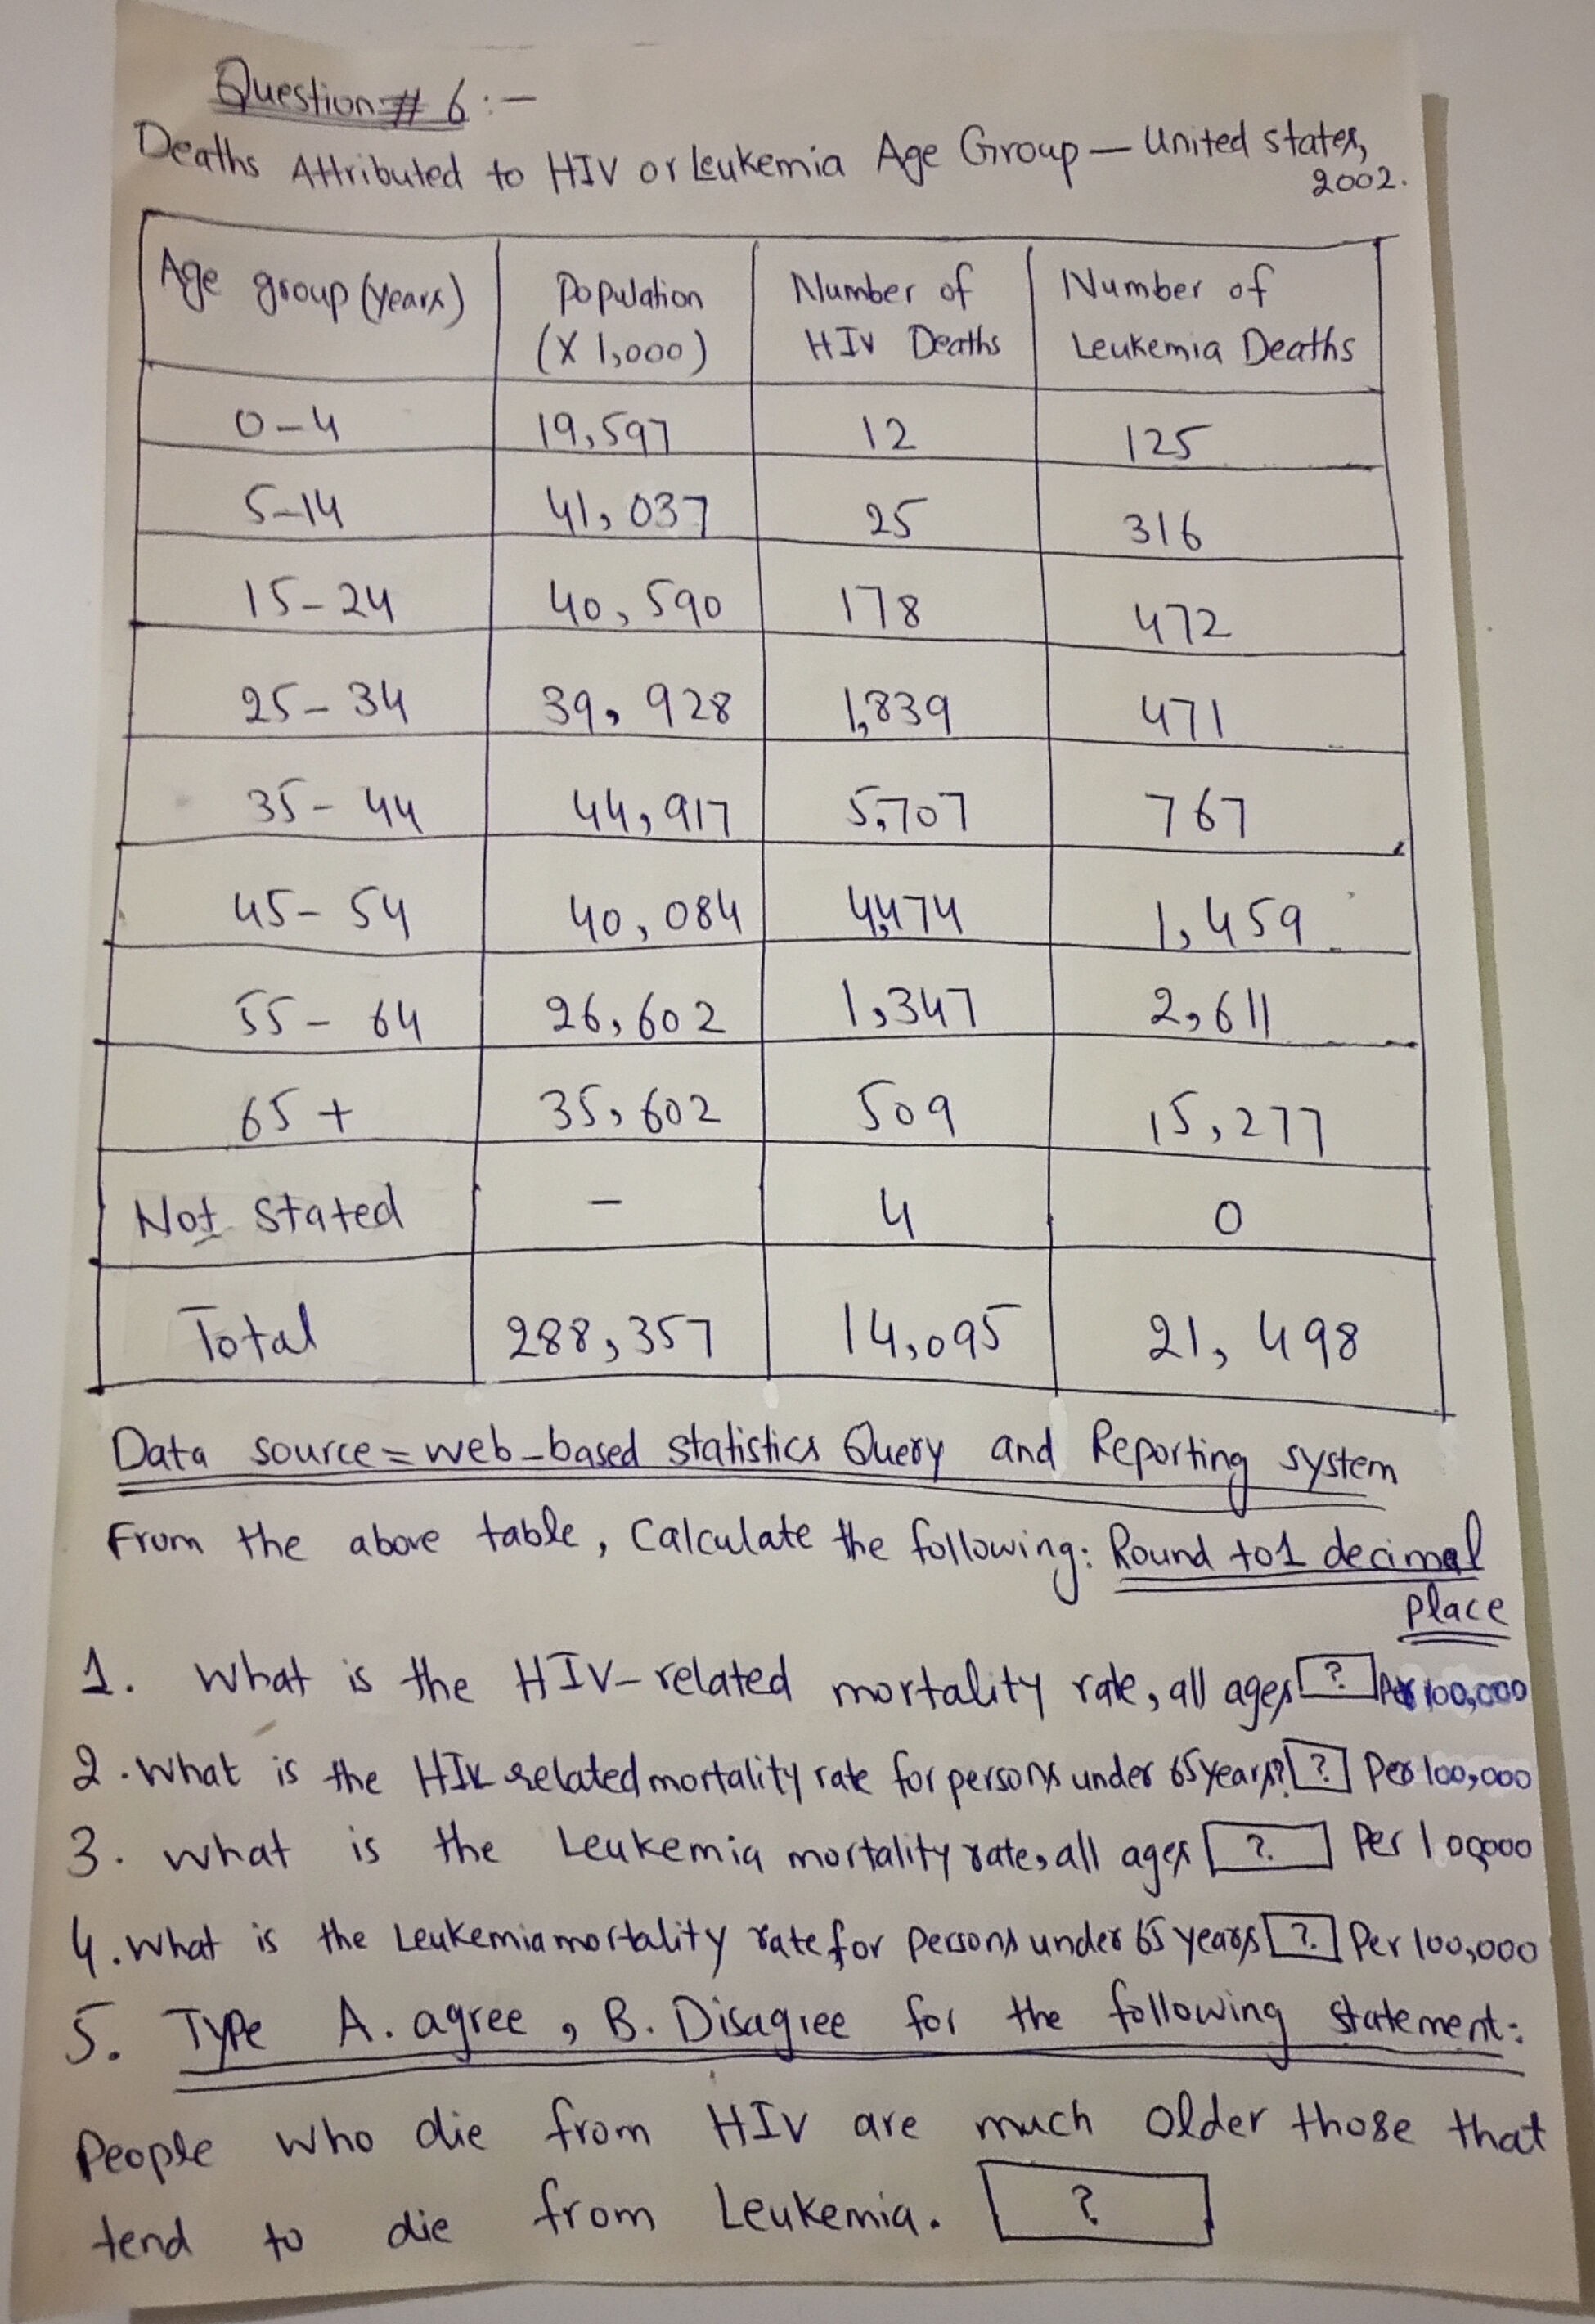 Question # 6:-
Deaths Attributed to HIV or Leukemia Age Group — United states,
2002.
Age group (years) Population (X 1,000) Number of HIV Deaths Number of Leukemia Deaths
0-4 19,597 12 125
5-14 41,037 25 316
15-24 40,590 178 472
25-34 39,928 1,839 471
35-44 44,917 5,707 767
45-54 40,084 4,474 1,459
55-64 26,602 1,347 2,611
65+ 35,602 509 15,277
Not stated - 4 0
Total 288,357 14,095 21,498
Data source = web-based statistics Query and Reporting system
From the above table, Calculate the following: Round to 1 decimal
place
1. What is the HIV-related mortality rate, all ages ? Per 100,000
2. What is the HIV related mortality rate for persons under 65 years? ? Per 100,000
3. what is the Leukemia mortality rate, all ages ? Per 100,000
4. What is the Leukemia mortality rate for Persons under 65 years ? Per 100,000
5. Type A. agree, B. Disagree for the following statement:
People who die from HIV are much older those that
tend to die from Leukemia. ?